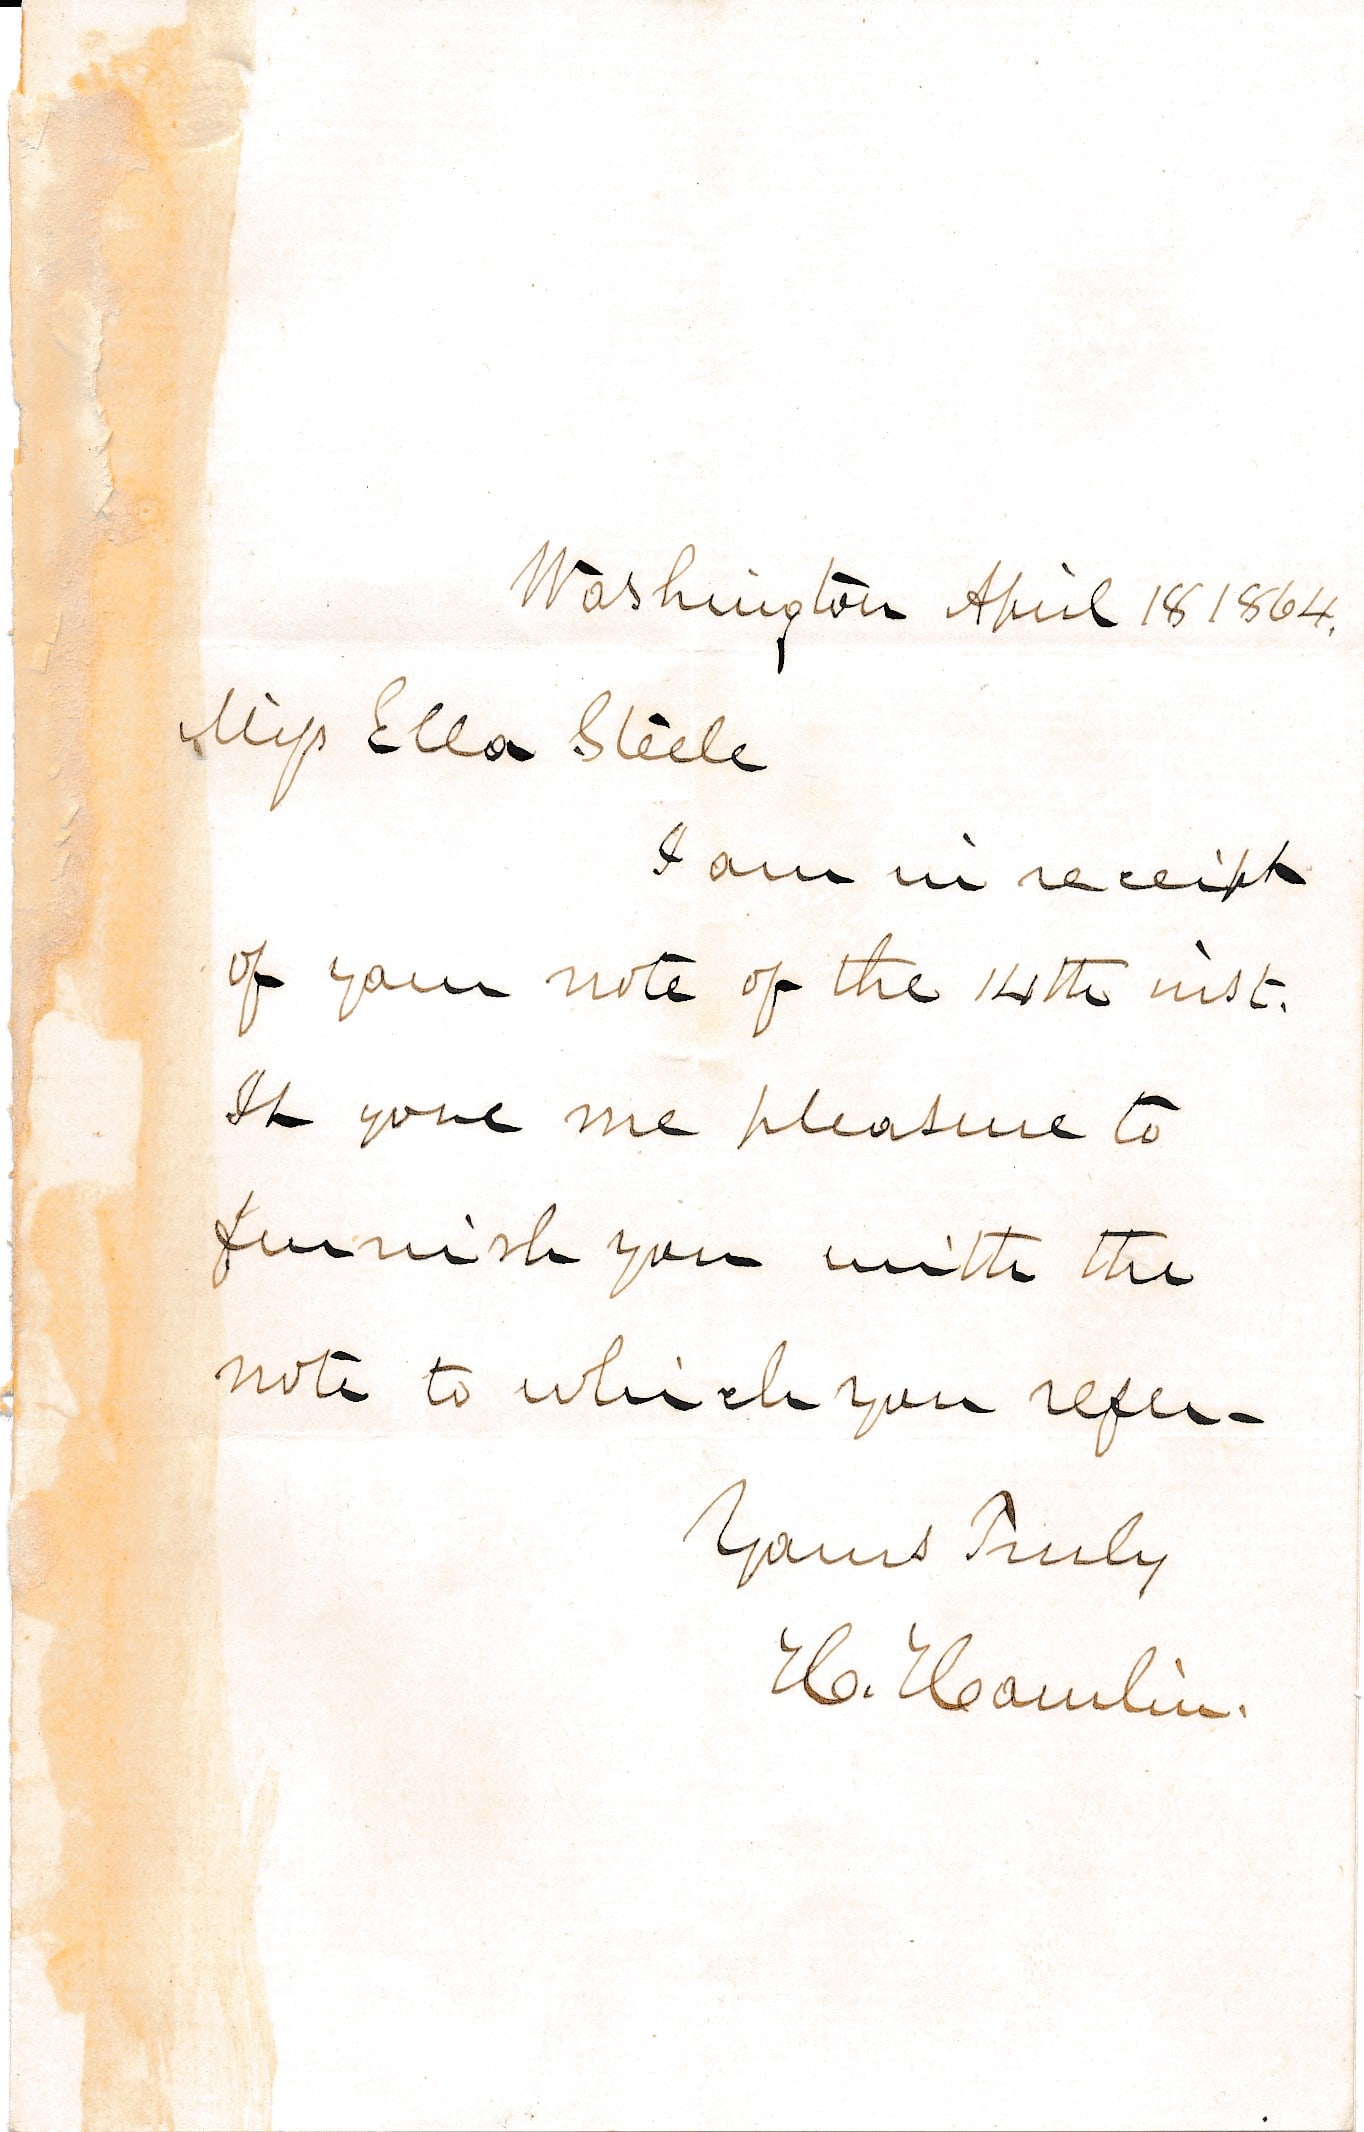 Washington April 18 1864.
Miss Ella Steele
I am in receipt
of your note of the 14th inst.
It gave me pleasure to
furnish you with the
note to which you refer–
Yours Truly
H. Hamlin.